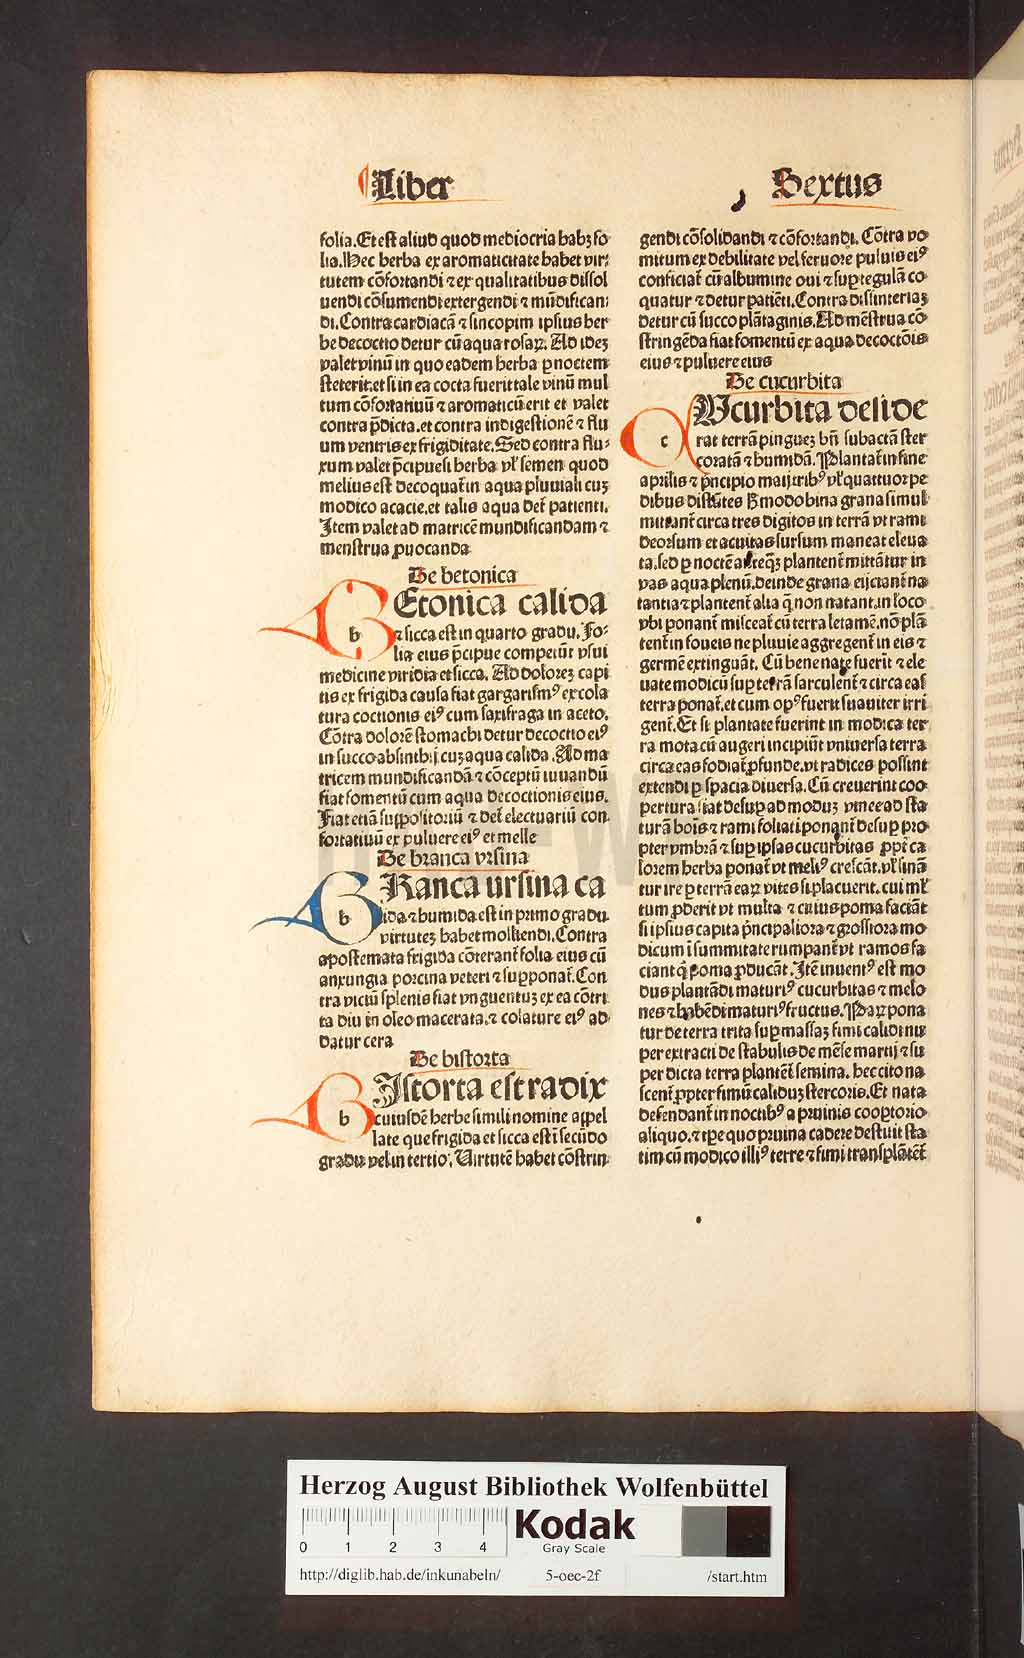 Liber Sextus
folia. Et est aliud quod mediocria habꝫ fo
lia. Hec herba ex aromaticitate habet vir⸗
tutem cõfortandi ⁊ ex qualitatibus dissol
uendi cõsumendi extergendi ⁊ mũdifican⸗
di. Contra cardiacã ⁊ sincopim ipsius her
be decoctio detur cũ aqua rosaꝝ. Ad ideꝫ
valet vinũ in quo eadem herba ꝑ noctem
steterit. et si in ea cocta fuerit tale vinũ mul
tum cõfortatiuũ ⁊ aromaticũ erit et valet
contra p̄dicta. et contra indigestionẽ ⁊ flu
um ventris ex frigiditate. Sed contra flu⸗
xum valet p̄cipue si herba vl̕ semen quod
melius est decoquat̃ in aqua pluuiali cuꝫ
modico acacie. et talis aqua det̃ patienti.
Item valet ad matricẽ mundificandam ⁊
menstrua ꝓuocanda
De betonica
Etonica calida
b ⁊ sicca est in quarto gradu. Fo⸗
lia eius p̄cipue competũt vsui
medicine viridia et sicca. Ad doloreꝫ capi
tis ex frigida causa fiat gargarismꝰ ex cola
tura coctionis eiꝰ cum saxifraga in aceto.
Cõtra dolorẽ stomachi detur decoctio eiꝰ
in succo absinthij cuꝫ aqua calida. Ad ma
tricem mundificandã ⁊ cõceptũ iuuandũ
fiat fomentũ cum aqua decoctionis eius.
Fiat etiã suppositoriũ ⁊ det̃ electuariũ con
fortatiuũ ex puluere eiꝰ et melle
De branca vrsina
Ranca ursina ca
b lida ⁊ humida est in primo gradu
virtuteꝫ habet molliendi. Contra
apostemata frigida cõterant̃ folia eius cũ
anxungia porcina veteri ⁊ supponat̃. Con
tra viciũ splenis fiat vnguentuꝫ ex ea cõtri
ta diu in oleo macerata. ⁊ colature eiꝰ ad
datur cera
De bistorta
Istorta est radix
b cuiusdẽ herbe simili nomine appel
late que frigida et sicca est ĩ secũdo
gradu vel in tertio. Uirtutẽ habet cõstrin
gendi cõsolidandi ⁊ cõfortandi. Cõtra vo
mitum ex debilitate vel feruore puluis eiꝰ
conficiat̃ cũ albumine oui ⁊ suꝑ tegulã co
quatur ⁊ detur patiẽti. Contra dissinteriaꝫ
detur cũ succo plãtaginis. Ad mẽstrua cõ
stringẽda fiat fomentũ ex aqua decoctõis
eius ⁊ puluere eius
De cucurbita
Ucurbita deside
c rat terrã pingueꝫ bñ subactã ster
coratã ⁊ humidã. Plantat̃ in fine
aprilis ⁊ p̄ncipio maij tribꝰ vl̕ quattuor pe
dibus distãtes hꝰ modo bina grana simul
mittant̃ circa tres digitos in terrã vt rami
deorsum et acuitas sursum maneat eleua
ta. sed ꝑ noctẽ anteqꝫ plantent̃ mittãtur in
vas aqua plenũ. deinde grana eijciant̃ na
tantia ⁊ plantent̃ alia q̃ non natant. in loco
vbi ponant̃ misceat̃ cũ terra letamẽ. nõ plã
tent̃ in foueis ne pluuie aggregent̃ in eis ⁊
germẽ extinguãt. Cũ bene nate fuerĩt ⁊ ele
uate modicũ suꝑ terrã sarculent̃ ⁊ circa eas
terra ponat̃. et cum opꝰ fuerit suauiter irri
gent̃. Et si plantate fuerint in modica ter
ra mota cũ augeri incipiũt vniuersa terra
circa eas fodiat̃ ꝓfunde. vt radices possint
extendi ꝑ spacia diuersa. Cũ creuerint coo
pertura fiat desuꝑ ad moduꝫ vinee ad sta
turã hoĩs ⁊ rami foliati ponant̃ desuꝑ pro
pter vmbrã ⁊ suꝑ ipsas cucurbitas ꝓpt̃ ca
lorem herba ponat̃ vt meliꝰ crescãt. vl̕ sinã
tur ire ꝑ terrã eaꝝ vites si placuerit. cui ml̕
tum ꝓderit vt multa ⁊ cuius poma faciãt
si ipsius capita p̄ncipaliora ⁊ grossiora mo
dicum ĩ summitate rumpant̃ vt ramos fa
ciant q̃ poma ꝓducãt. Itẽ inuentꝰ est mo
dus plantãdi maturiꝰ cucurbitas ⁊ melo
nes ⁊ habẽdi maturiꝰ fructus. Paꝝ pona
tur de terra trita suꝑ massaꝫ fimi calidi nu
per extracti de stabulis de mẽse martij ⁊ su
per dicta terra plantẽt̃ semina. hec cito na
scent̃ ꝓpter fimũ caliduꝫ stercoris. Et nata
defendant̃ in noctibꝰ a pruinis cooptorio
aliquo. ⁊ tꝑe quo pruina cadere destuit sta
tim cũ modico illiꝰ terre ⁊ fimi transplãtẽt̃
Herzog August Bibliothek Wolfenbüttel
0 1 2 3 4
Kodak
Gray Scale
http://diglib.hab.de/inkunabeln/ 5-oec-2f /start.htm